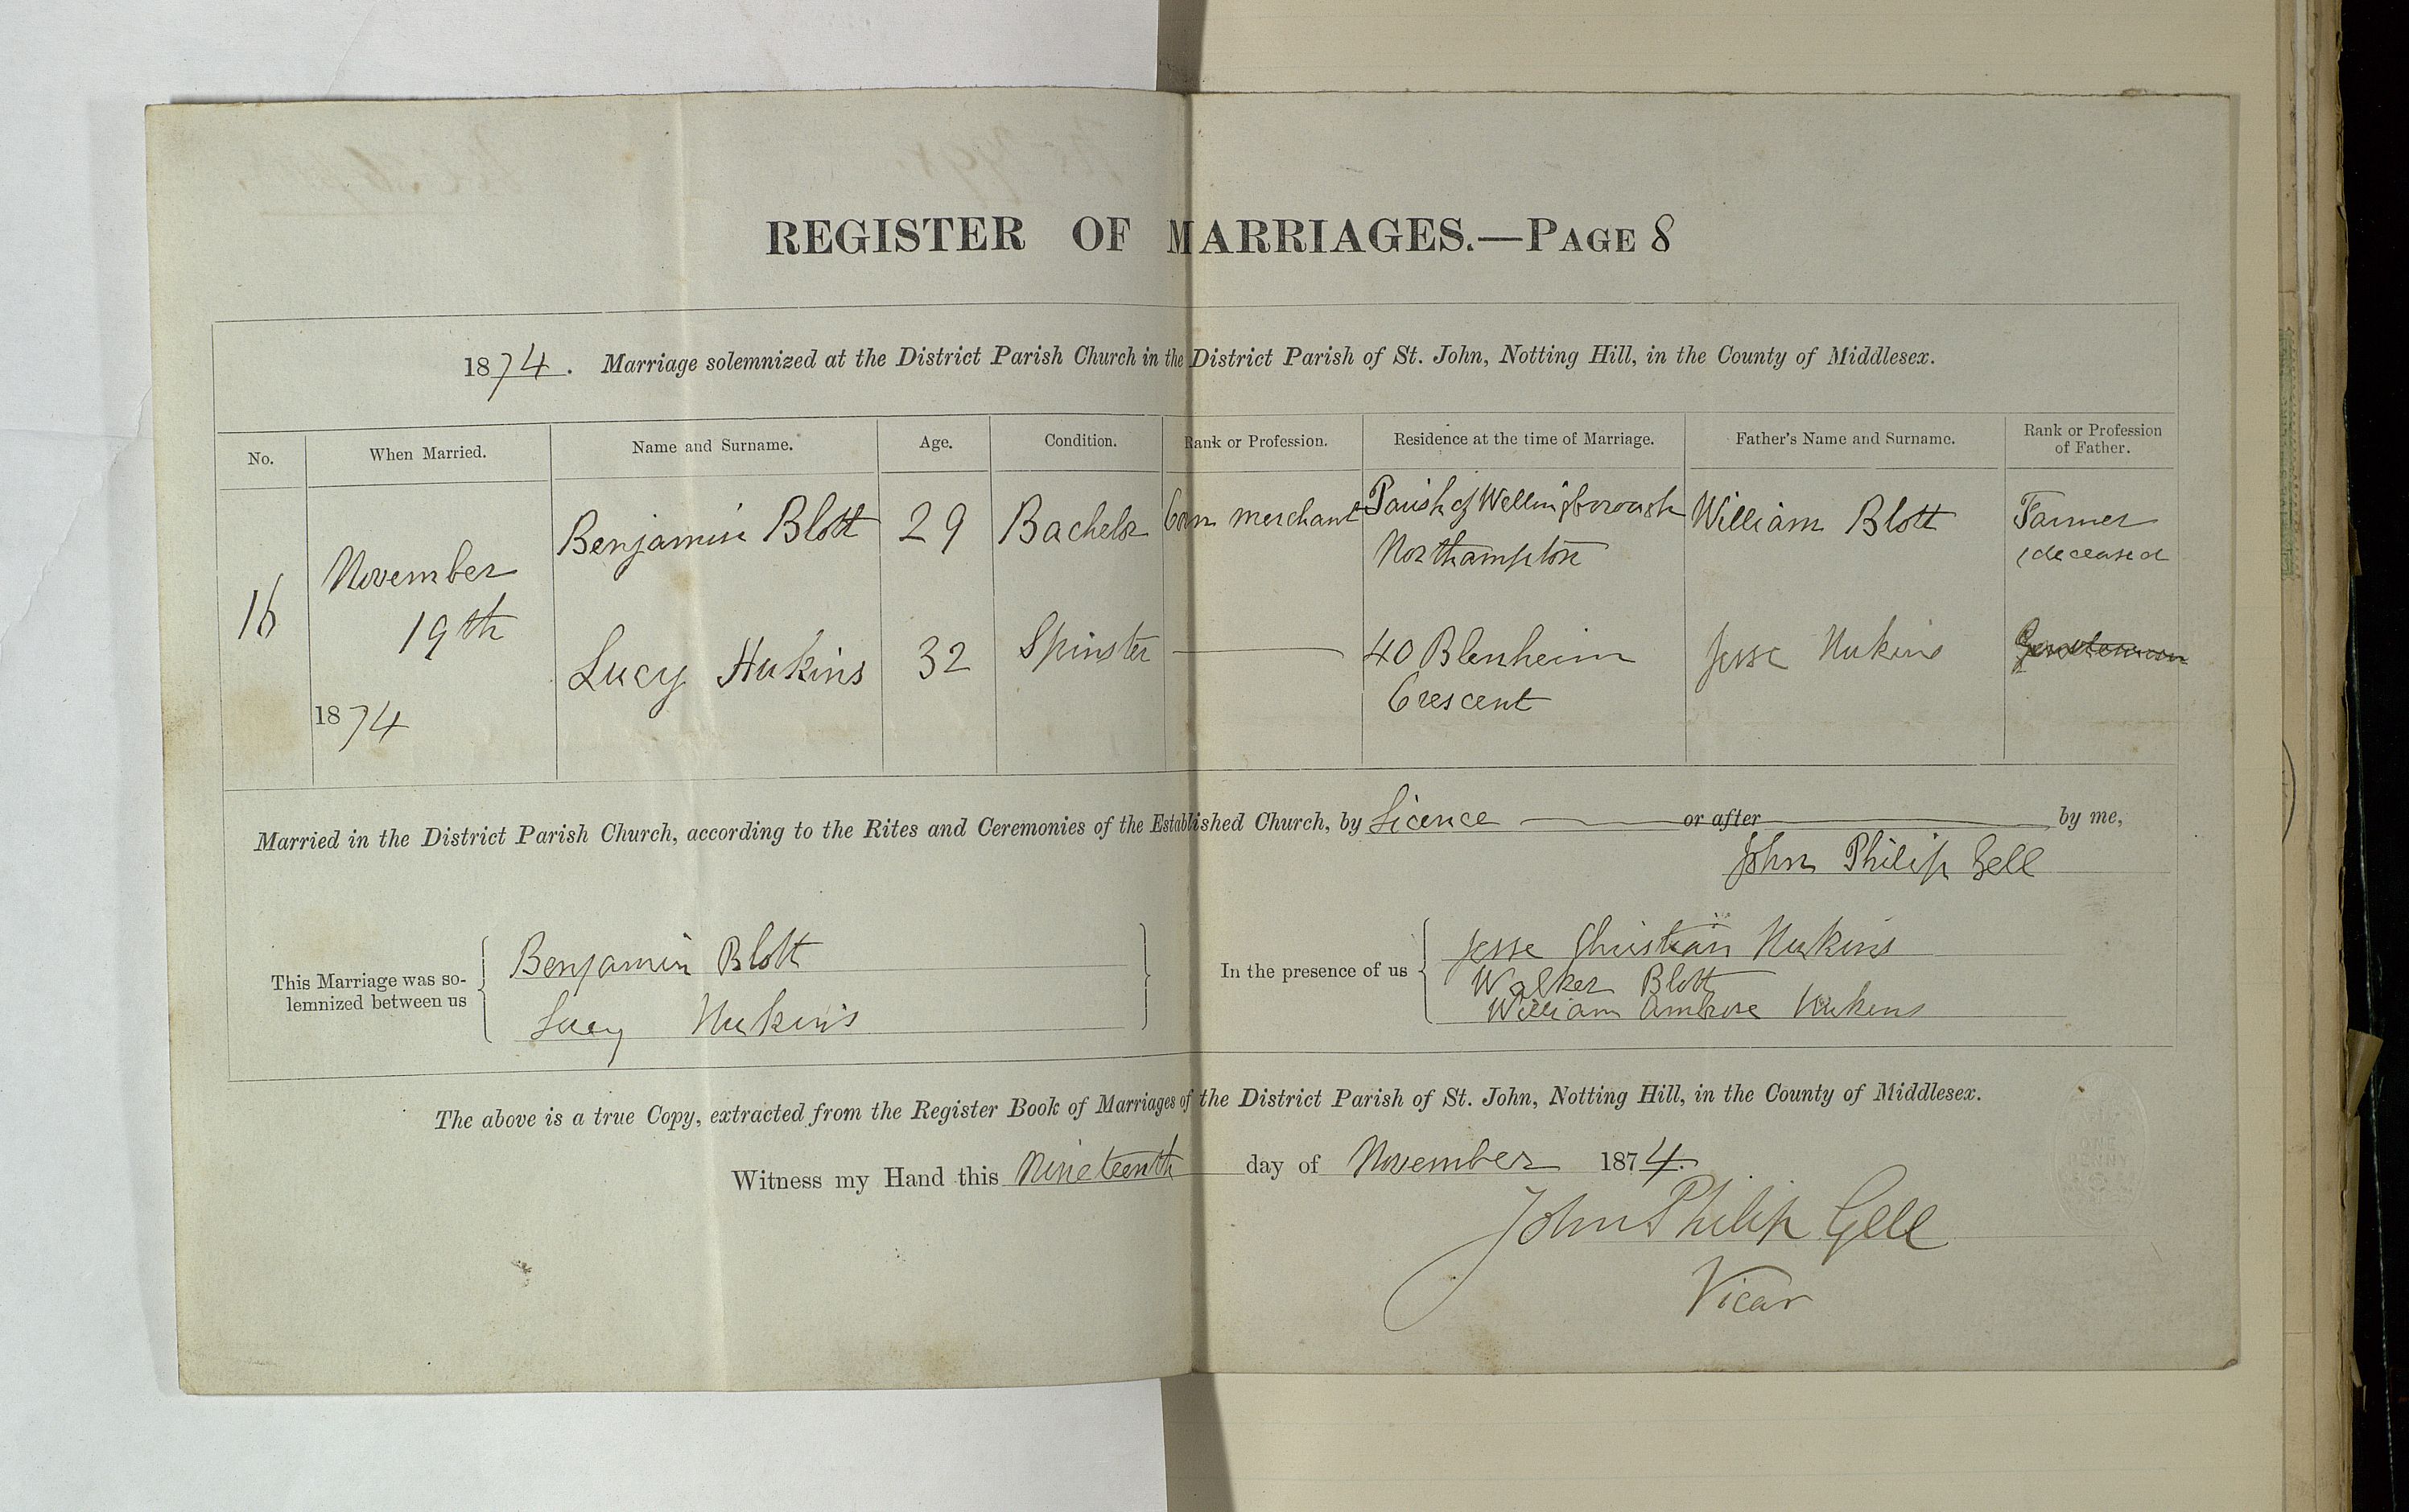 REGISTER OF MARRIAGES.—PAGE 8
1874. Marriage solemnized at the District Parish Church in the District Parish of St. John, Notting Hill, in the County of Middlesex.
No. When Married. Name and Surname. Age. Condition. Rank or Profession. Residence at the time of Marriage. Father's Name and Surname. Rank or Profession
of Father.
16 November
19th
1874
Benjamin Blott 29 Bachelor Corn merchant Parish of Wellingborough William Blott Farmer
Northampton deceased
Lucy Hukins 32 Spinster 40 Blenheim Jesse Hukins Gentleman
Crescent
Married in the District Parish Church, according to the Rites and Ceremonies of the Established Church, by Licence or after by me,
John Philip Gell
This Marriage was so-
lemnized between us
Benjamin Blott
Lucy Hukins
In the presence of us
Jesse Christian Hukins
Walker Blott
William Ambrose Hukins
The above is a true Copy, extracted from the Register Book of Marriages of the District Parish of St. John, Notting Hill, in the County of Middlesex.
Witness my Hand this Nineteenth day of November 1874.
John Philip Gell
Vicar